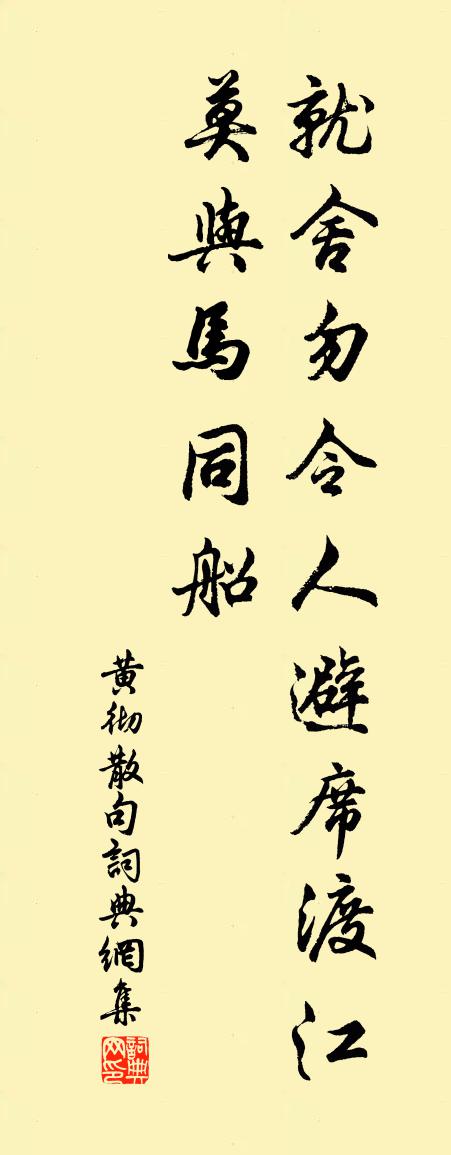 就舍勿令人避席渡江
莫與馬同船
黄彻散句詞典網集
詞典网印